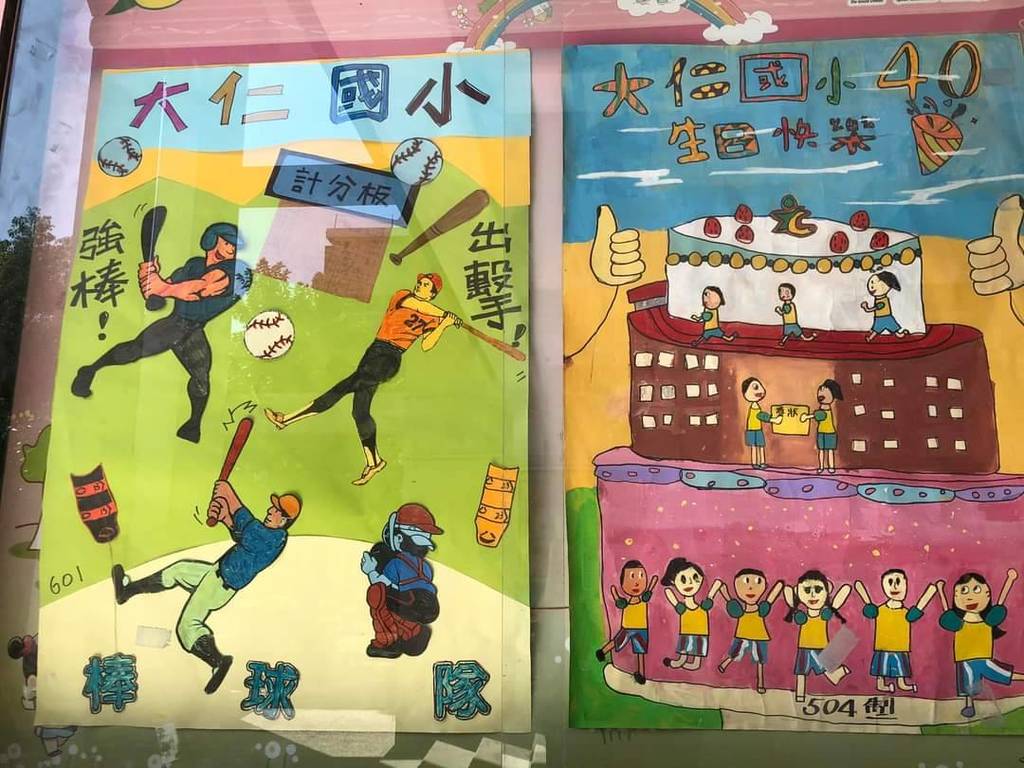 大仁國小
計分板
強棒!
出擊!
27
601
棒球隊
大仁國小40
生日快樂
獎狀
504 製